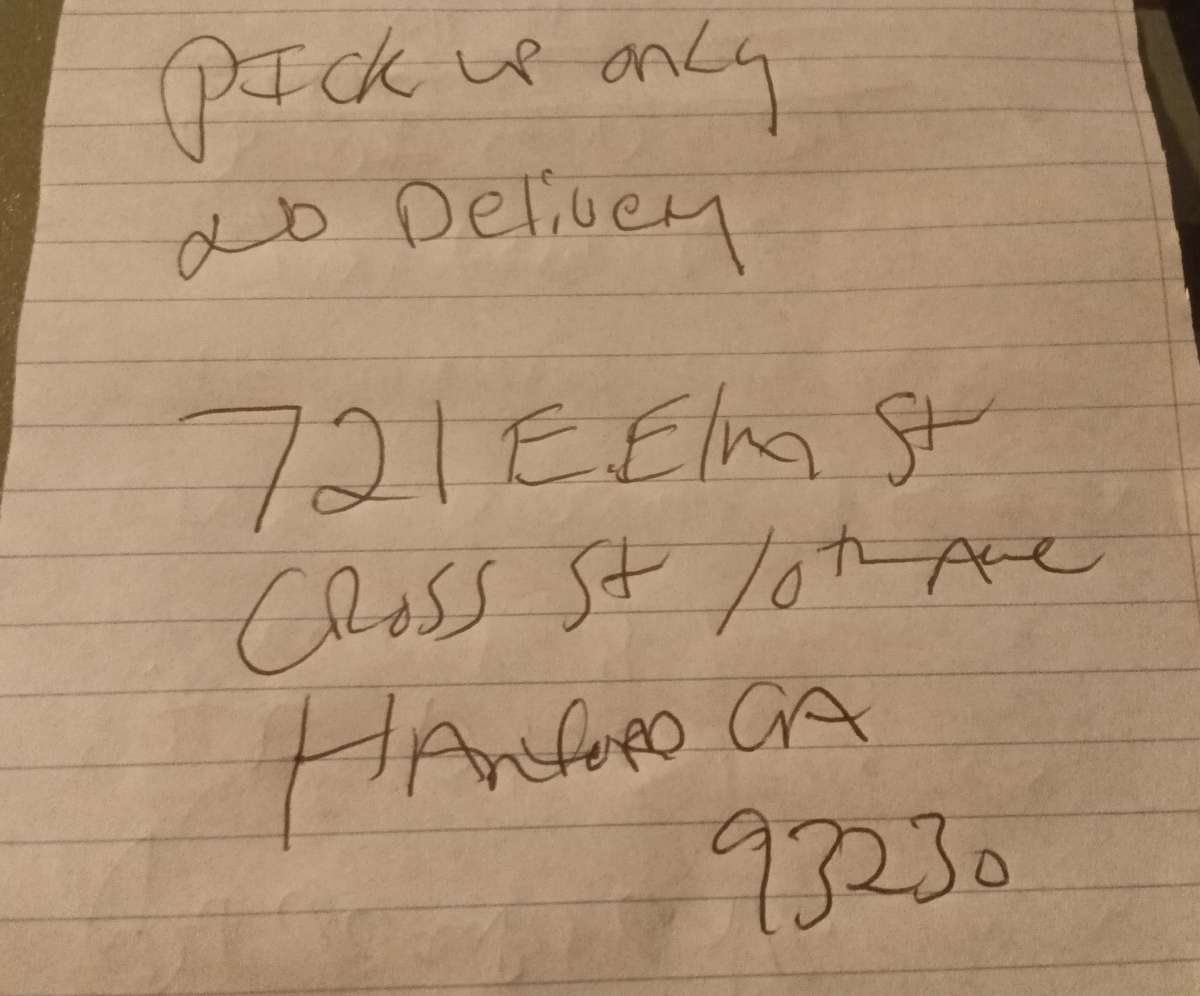 Pick up only
No Delivery
721 E. Elm St
Cross St 10th Ave
Hanford CA
93230